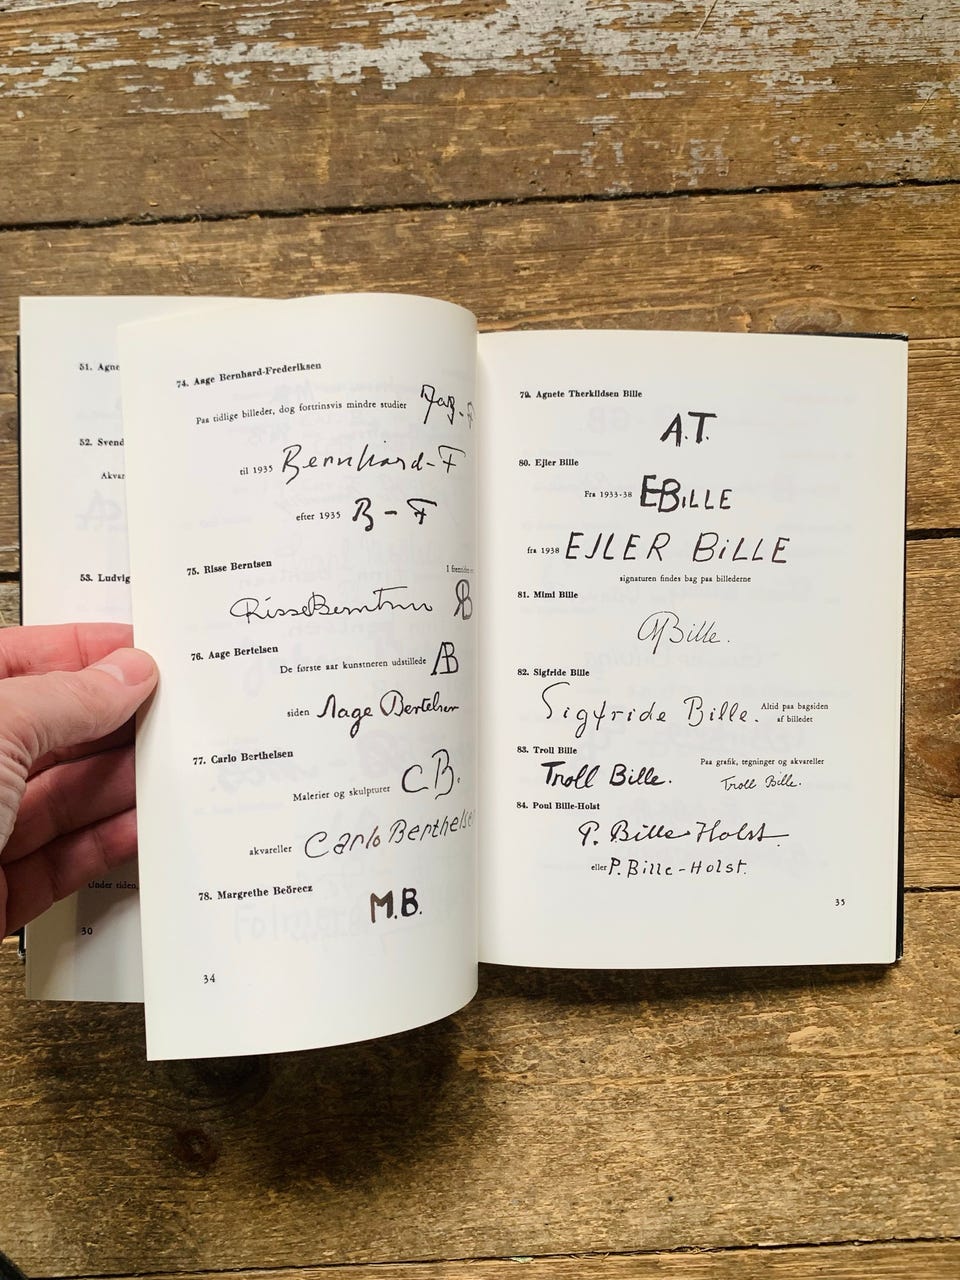 51. Agne
52. Svend
Akvar
53. Ludvig
Under tiden,
30
74. Aage Bernhard-Frederiksen
Paa tidlige billeder, dog fortrinsvis mindre studier
til 1935 Bernhard-F
efter 1935 B-F
75. Risse Berntsen
I fremtiden
Risse Berntsen RB
76. Aage Bertelsen
De første aar kunstneren udstillede AB
siden Aage Bertelsen
77. Carlo Berthelsen
Malerier og skulpturer C B.
akvareller Carlo Berthelse
78. Margrethe Beörecz
M.B.
34
79. Agnete Therkildsen Bille
A.T.
80. Ejler Bille
Fra 1933-38 EBILLE
fra 1938 EJLER BiLLE
signaturen findes bag paa billederne
81. Mimi Bille
MBille.
82. Sigfride Bille
Sigfride Bille. Altid paa bagsiden
af billedet
83. Troll Bille
Paa grafik, tegninger og akvareller
Troll Bille. Troll Bille.
84. Poul Bille-Holst
P. Bille Holst
eller P. Bille-Holst.
35